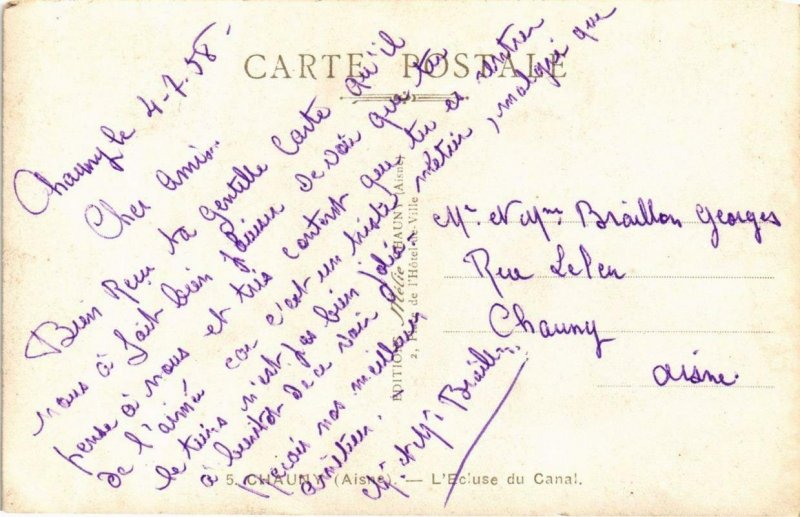 CARTE POSTALE
Chauny le 4-7-58-
Cher Amis.
Bien Reçu ta gentille Carte qu'il
nous à fait bien plaisir de voie que tu
pense à nous et très content que tu es rentrer
de l'aimé car c'est un triste métier, malgré que
le tiens n'est pas bien joli
à bientot de te voir
Reçois nos meilleurs
amitiés.
Mr et Mme Braillon
Mr et Mme Braillon Georges
Rue Le Peu
Chauny
Aisne.
EDITIONS Mélie CHAUNY (Aisne)
2, de l'Hôtel-de-Ville
5. CHAUNY (Aisne). — L'Ecluse du Canal.